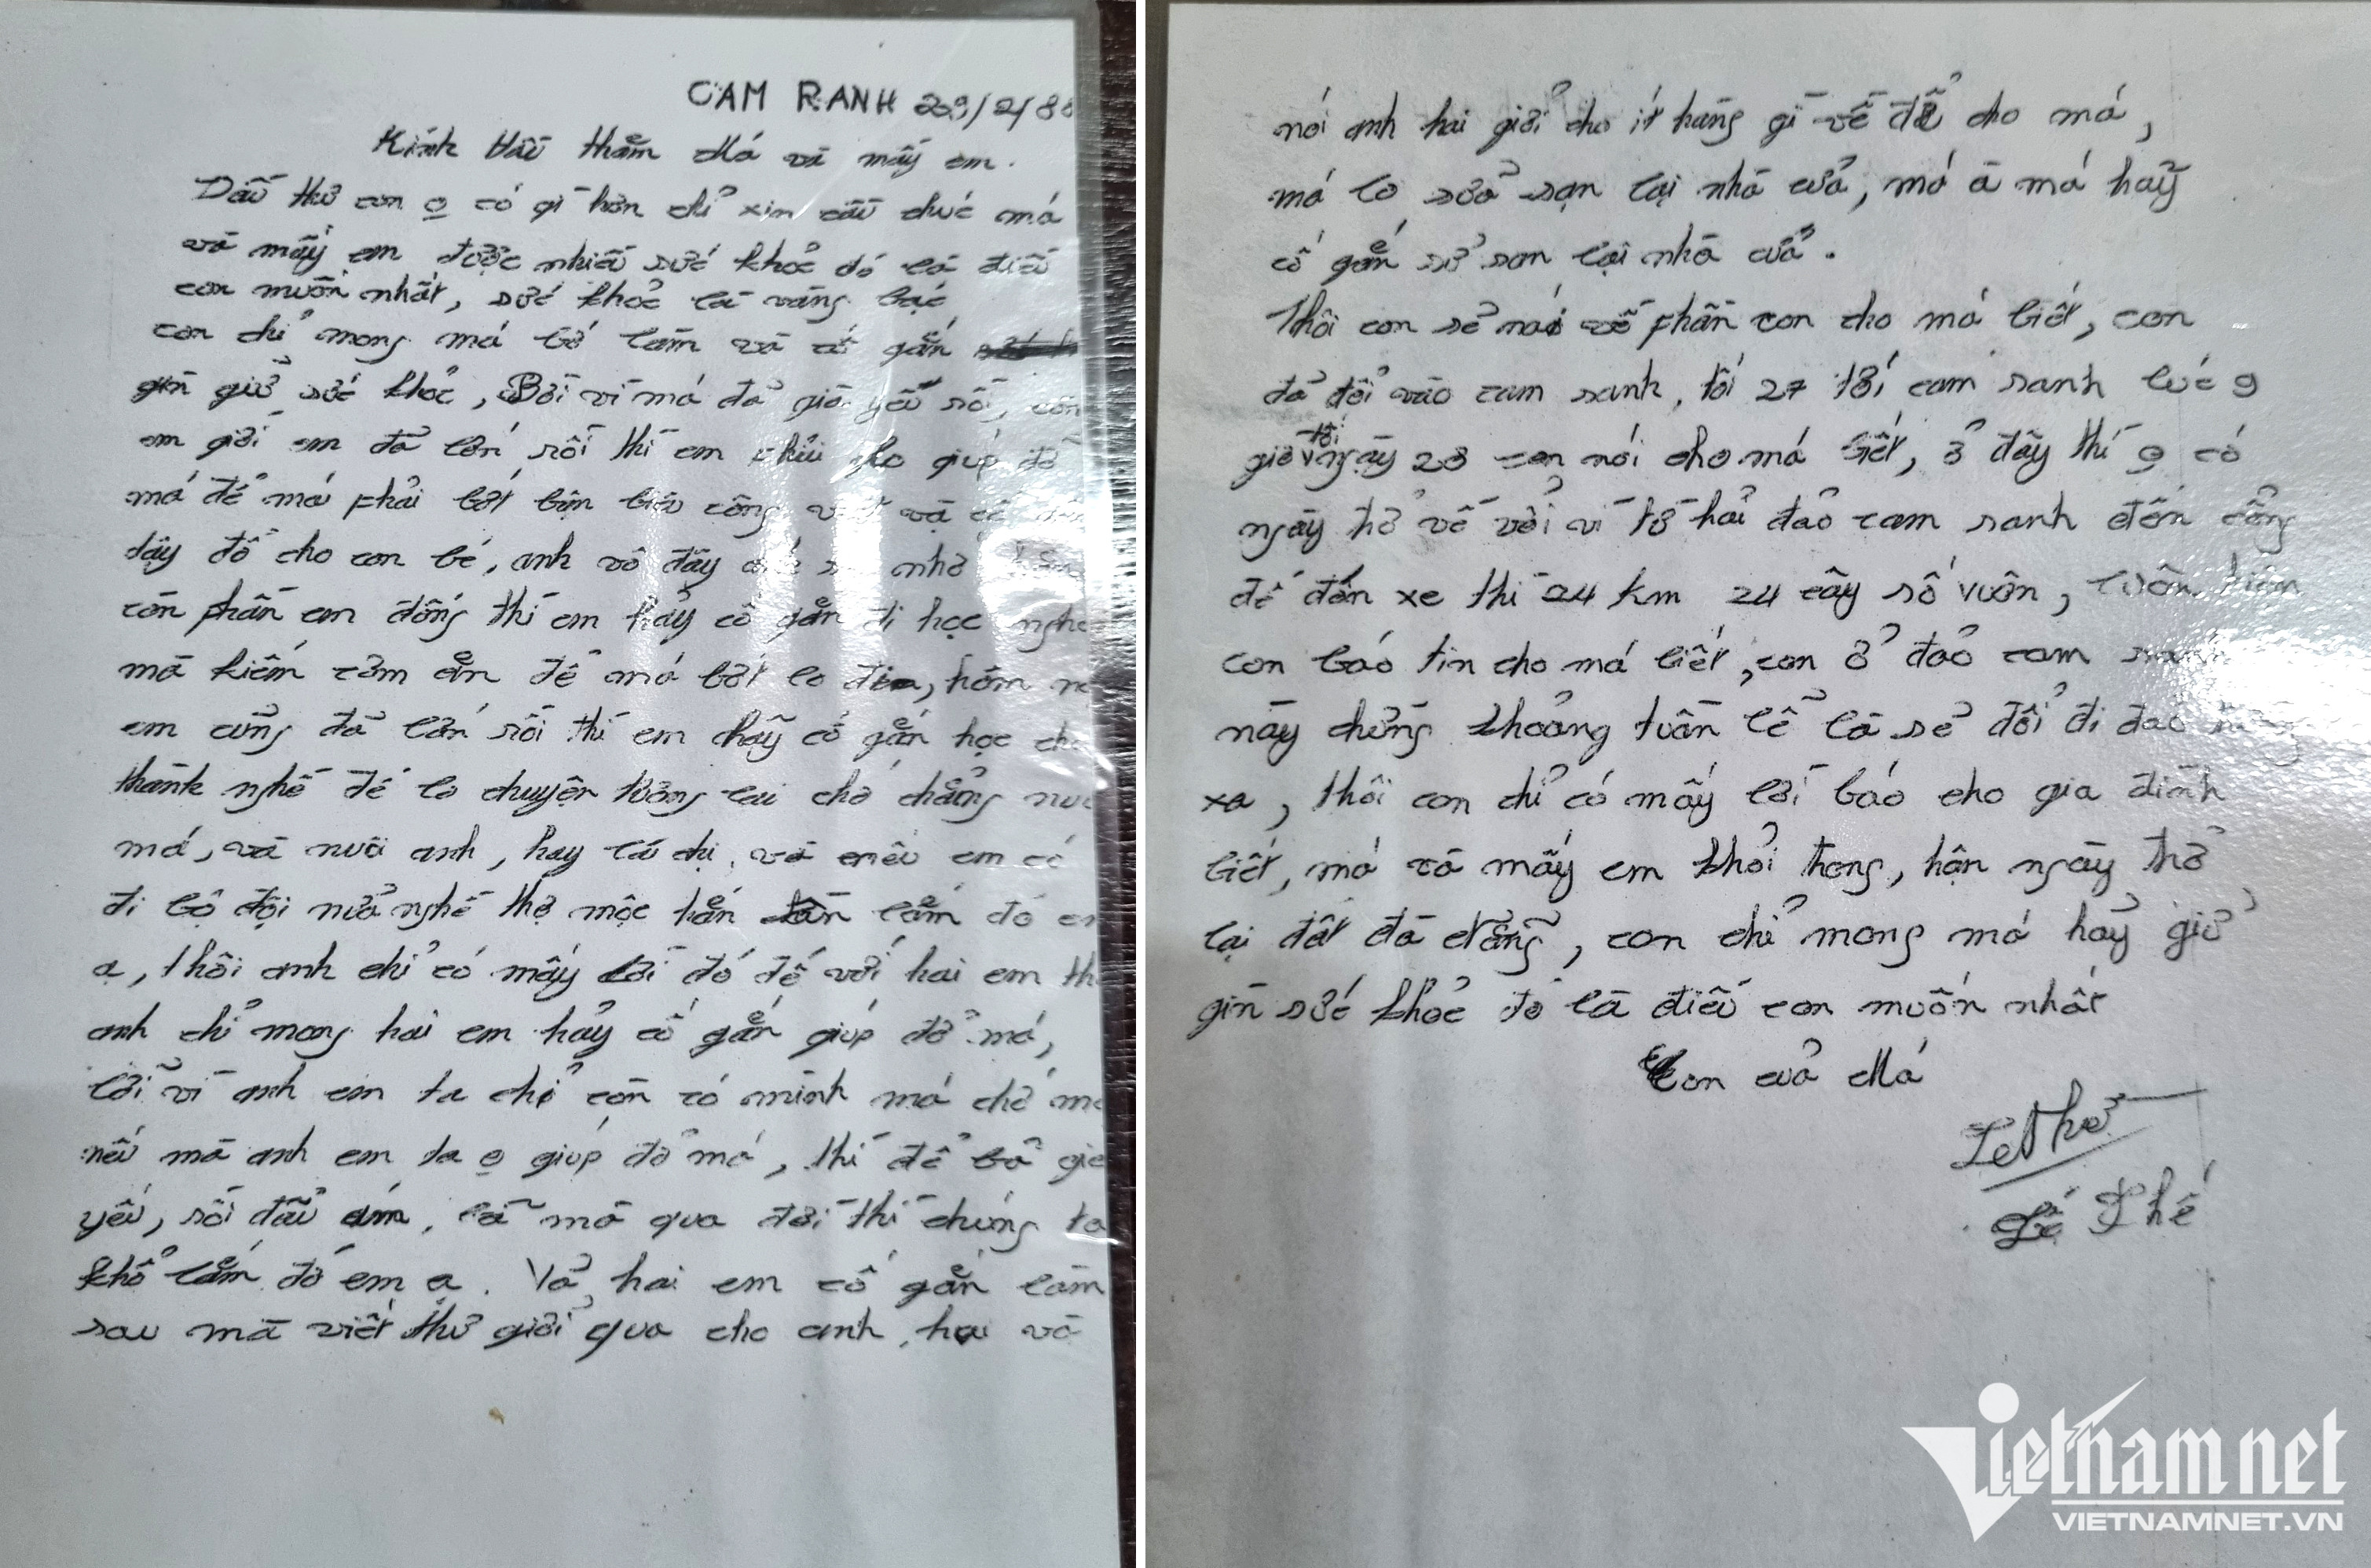 CAM RANH 29/2/88
Kính thăm Má và mấy em.
Đầu thư con o có gì hơn chỉ xin cầu chúc má
và mấy em được nhiều sức khỏe đó là điều
con muốn nhất, sức khỏe là vàng bạc
con chỉ mong má bớt làm và cố gắn
gìn giữ sức khỏe, Bởi vì má đả già yếu rồi, còn
em giới em đã lớn rồi thì em phải cho giúp đỡ
má để má phải bớt bận biệu công và
dậy đổ cho con bé, anh vô đây nhớ
còn phần em đông thì em hảy cố gắn đi học nghề
mà kiếm cơm ăn để má bớt lo, hôm
em cũng đả lớn rồi thì em hãy cố gắn học
thành nghề để lo chuyện tương lai chớ chẳng
má, và nuôi anh, hay là chị, và nếu em có
đi bộ đội nửa nghề thợ mộc lắm đó em
ạ, thôi anh chỉ có mấy lời đó để với hai em
anh chỉ mong hai em hảy cố gắn giúp đở má,
bởi vì anh em ta chỉ còn có mình má chớ
nếu mà anh em ta o giúp đở má, thì để bả già
yếu, rồi đau ốm, lở mà qua đời thì chúng ta
khổ lắm đó em ạ. Và hai em cố gắn làm
sau mà viết thư giởi qua cho anh hai và
nói anh hai giởi cho ít hàng gì về để cho má,
má lo sửa sạn lại nhà cửa, má à má hãy
cố gắn sử san lại nhà cửa.
Thôi con sẻ nói về phần con cho má biết, con
đả đổi vào cam ranh, tối 27 tới cam ranh lúc 9
giờ tới ngày 28 con nói cho má biết, ở đây thì o có
ngày thở về với vì từ hải đảo cam ranh đến cổng
để đón xe thì 24 km 24 cây số vuôn, luôn tiện
con báo tin cho má biết, con ở đảo cam ranh
này chừng khoảng tuần lễ là sẻ đổi đi đảo
xa, thôi con chỉ có mấy lời báo cho gia đình
biết, má và mấy em khỏi trong, hận ngày thở
lại đất đà nẵng, con chỉ mong má hảy giử
gìn sức khỏe đó là điều con muốn nhất
Con của Má
Lê Thế
vietnamnet
VIETNAMNET.VN